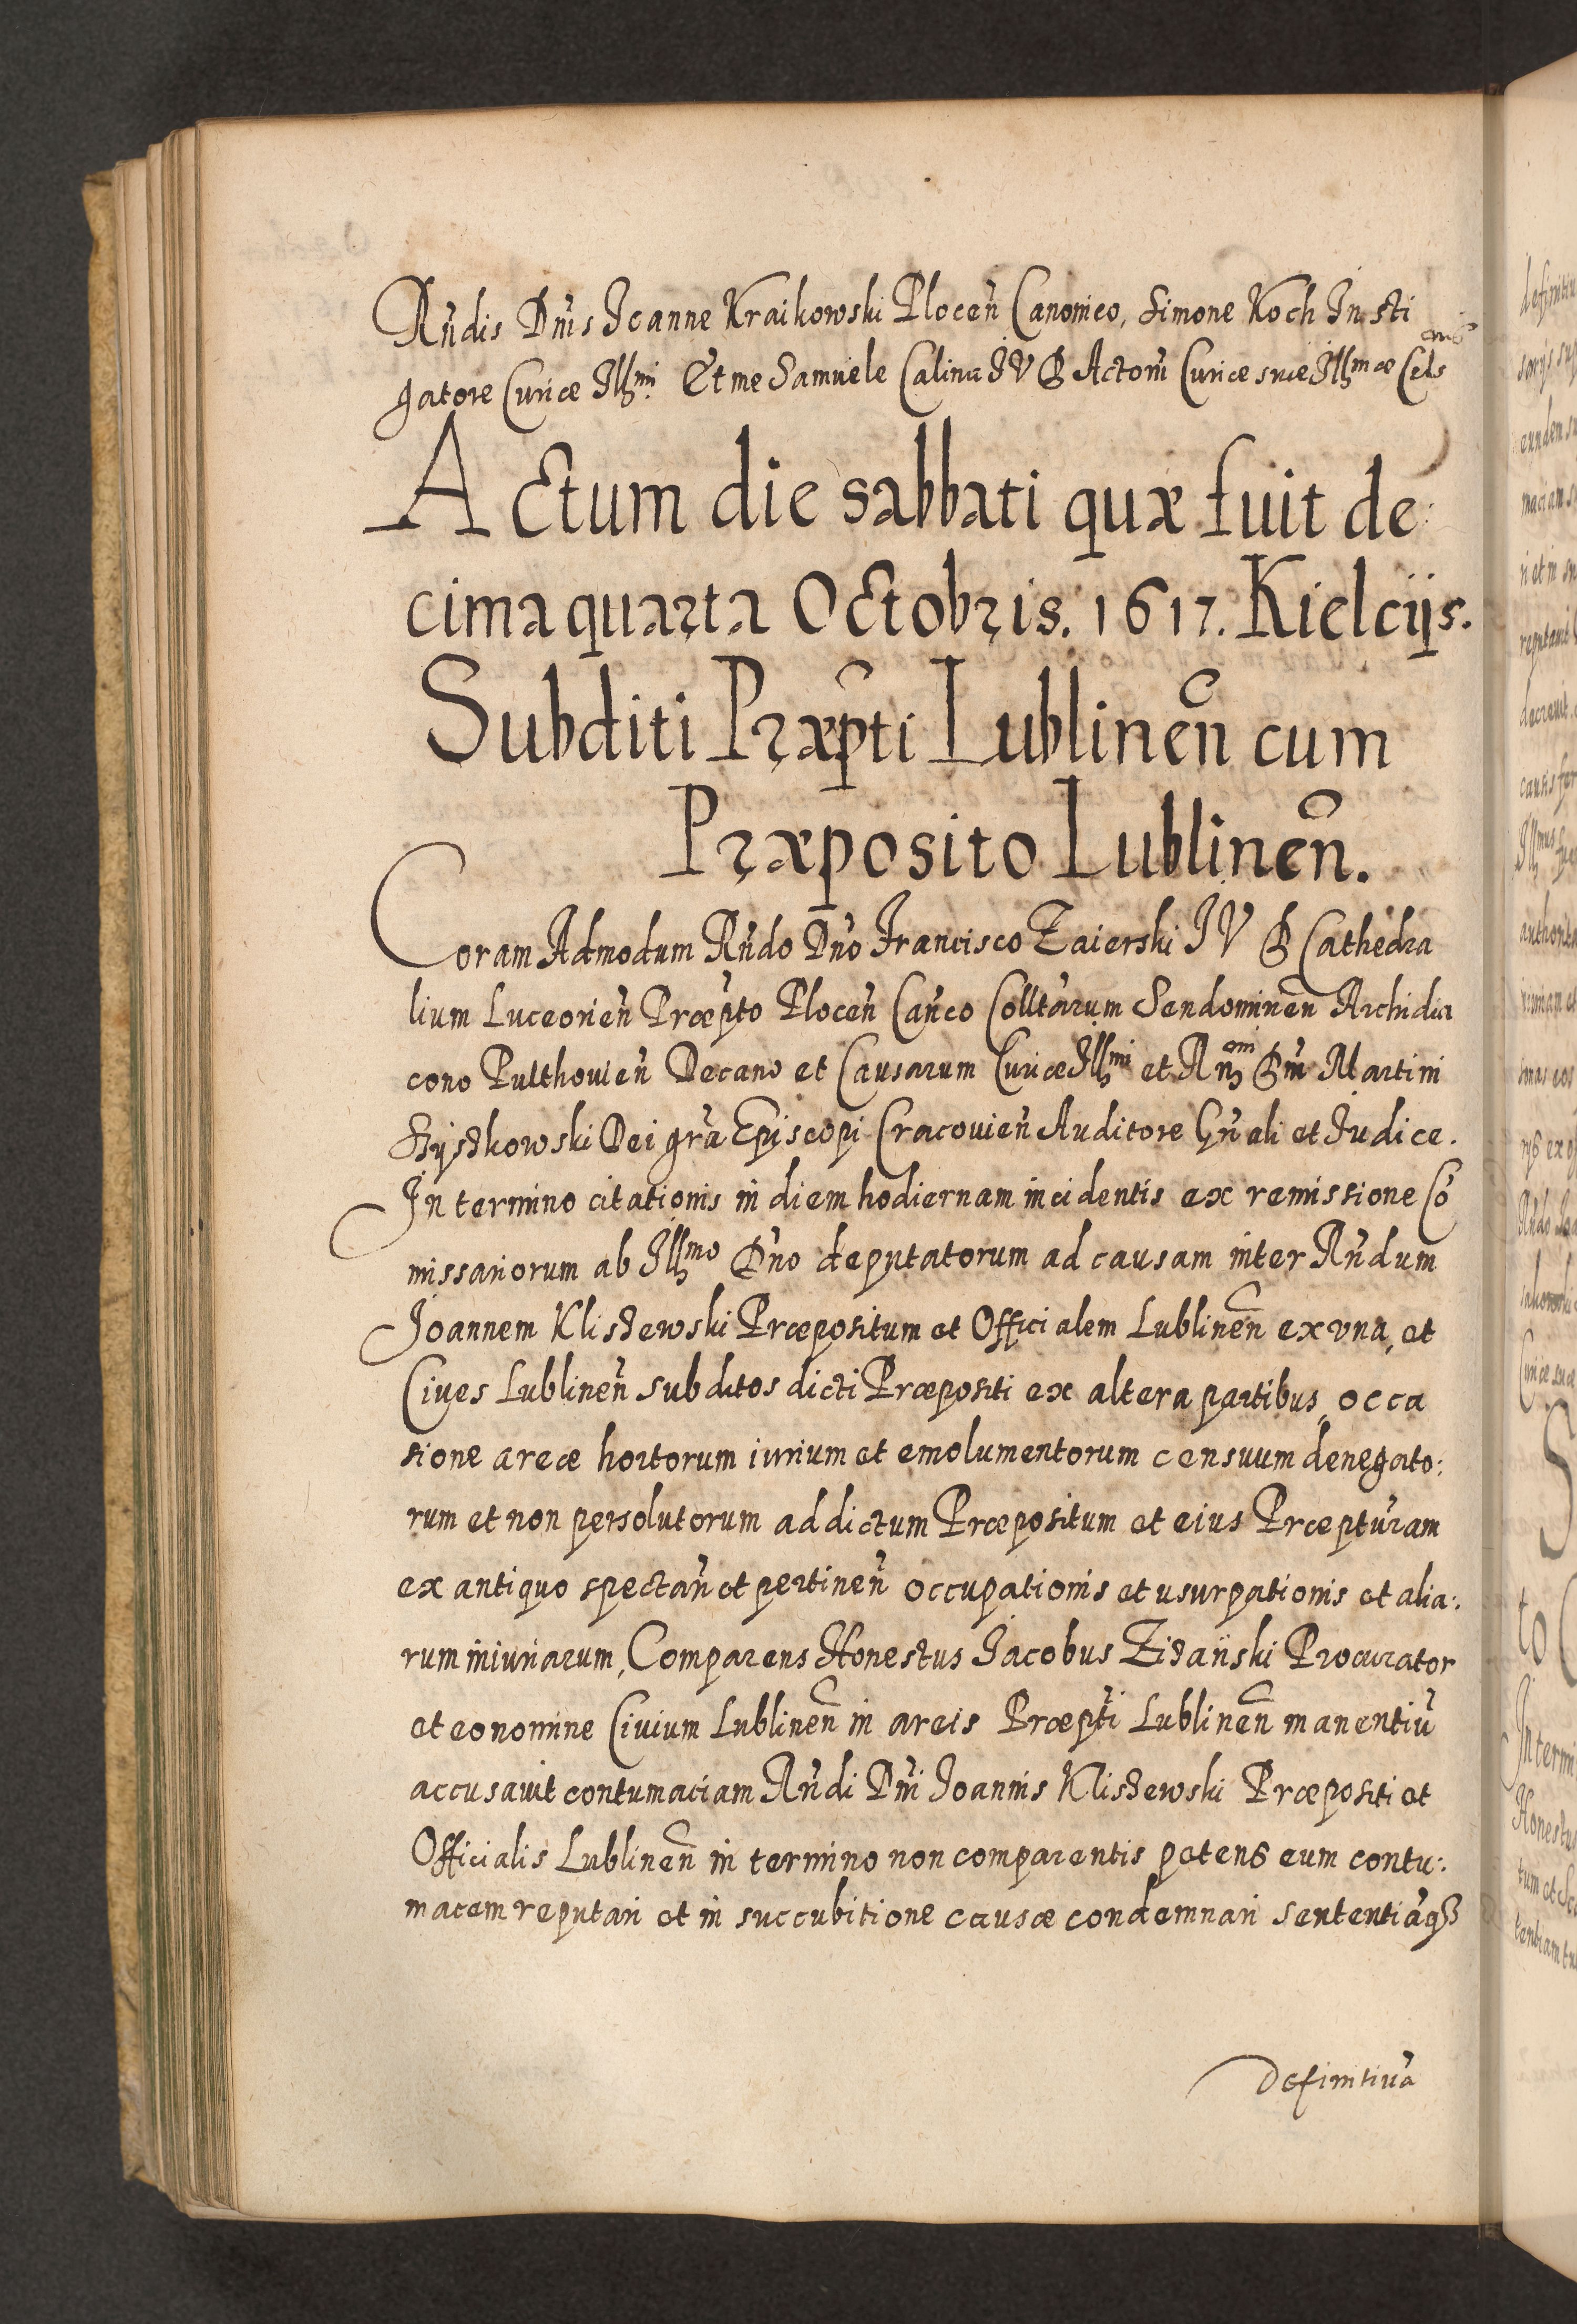 Rñdis Dñis Joanne Kraikowski Ploceñ Canonico, Simone Koch Insti
gatore Curiæ Illmi. Et me Samuele Calina IVD Actorũ Curiæ suæ Illmæ Cels nis
Actum die sabbati quæ fuit de:
cima quarta Octobris. 1617. Kielcijs.
Subditi Præpti Lublineñ cum
Præposito Lublineñ.
Coram Admodum Rñdo Dño Francisco Zaierski IV D Cathedra
lium Luceorieñ Præpto Ploceñ Cañco Colltarum Sendomirieñ Archidia
cono Pulthovieñ Decano et Causarum Curiæ Illmi et Rñ Dñi Martini
Szyszkowski Dei gra Episcopi Cracovieñ Auditore Gñali et Judice.
In termino citationis in diem hodiernam incidentis ex remissione Cõ
missariorum ab Illmo Dño deputatorum ad causam inter Rñdum
Joannem Kliszewski Præpositum et Officialem Lublineñ ex vna, et
Cives Lublineñ subditos dicti Præpositi ex altera partibus, occa
sione areæ hortorum iurium et emolumentorum censuum denegato:
rum et non persolutorum ad dictum Præpositum et eius Præpturam
ex antiquo spectañ et pertineñ occupationis et usurpationis et alia:
rum iniuriarum, Comparens Honestus Jacobus Procurator
et eo nomine Civium Lublineñ in areis Præpti Lublineñ manentiũ
accusavit contumaciam Rñdi Dñi Joannis Kliszewski Præpositi et
Officialis Lublineñ in termino non comparentis petens eum contu:
macem reputari et in succubitione causæ condemnari sententiãqꝫ
Definitivã